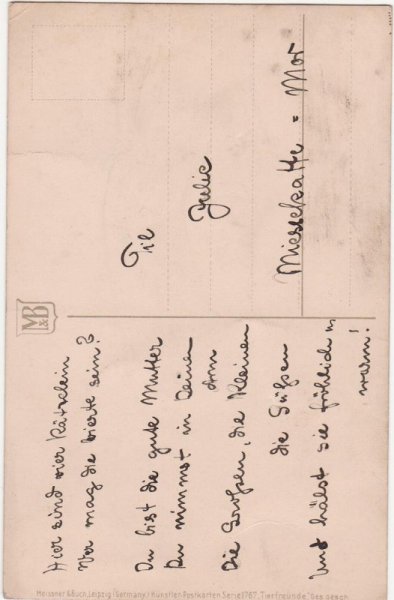 Hier sind vier Kätzlein
Wer mag die vierte sein?
Du bist die gute Mutter
Du nimmst in Deinen
Arm
Die Großen, die Kleinen
die Süßen
Und hälst sie fröhlich u
warm!
M&B
Til
Julie
Miesekatte = Mor
Meissner & Buch, Leipzig (Germany) Künstler-Postkarten Serie 1767. "Tierfreunde" Ges. gesch.